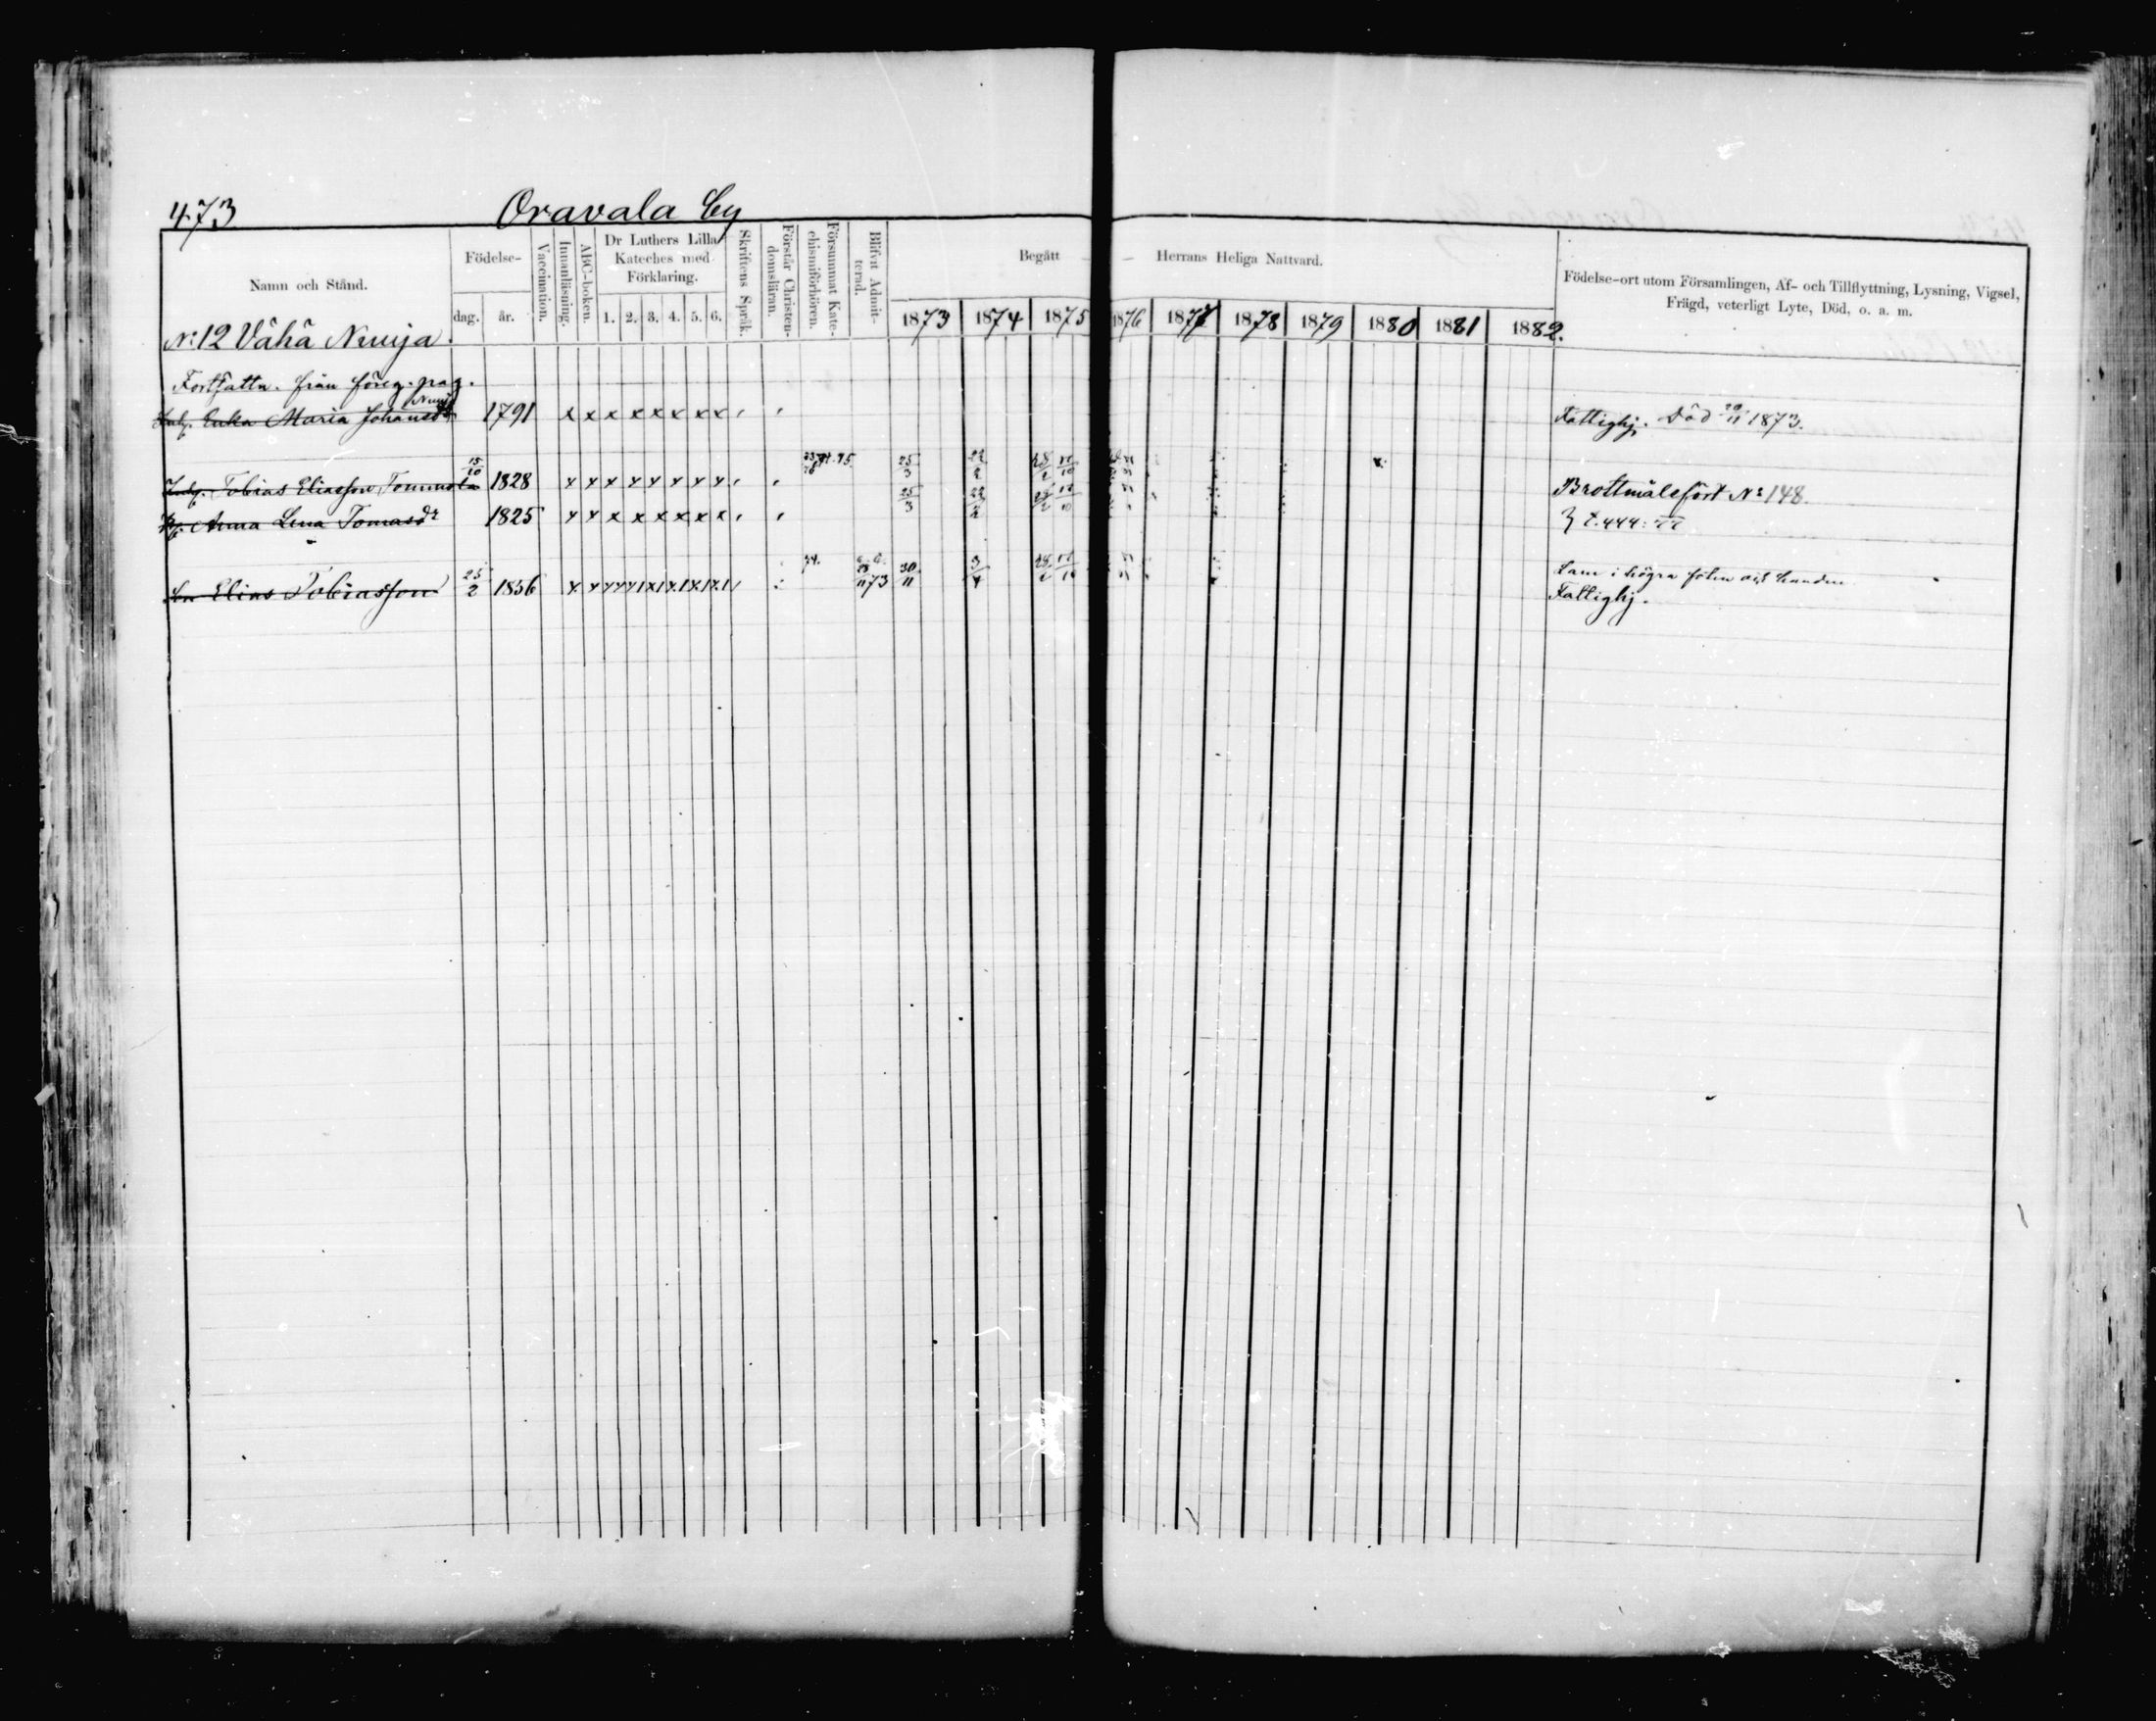 473 Oravala by
Namn och Stånd.
Födelse-
dag. år.
Vaccination.
Innanläsning.
ABC-boken.
Dr Luthers Lilla
Kateches med
Förklaring.
1. 2. 3. 4. 5. 6.
Skriftens Språk.
Förstår Christen-
domsläran.
Försummat Kate-
chismiförhören.
Blifvit Admit-
terad.
Begått Herrans Heliga Nattvard.
1873 1874 1875 1876 1877 1878 1879 1880 1881 1882.
Födelse-ort utom Församlingen, Af- och Tillflyttning, Lysning, Vigsel,
Frägd, veterligt Lyte, Död, o. a. m.
No 12 Vähä Nuuja.
Fortsattn. från föreg. pag.
Maria Johansdr 1791 x x x x x x x x Fattighj. Död 1873.
Inhs. Tobias Eliasson Tommola 15/10 1828 x x x x x x x x 25/3 22/2 Brottmålsfört No 148.
Hu. Anna Lena Tomasdr 1825 x x x x x x x x 25/3 22/2 t. 444:
Son Elias Tobiasson 25/2 1856 74. 73 30/11 Lam i högra foten och handen
Fattighj.